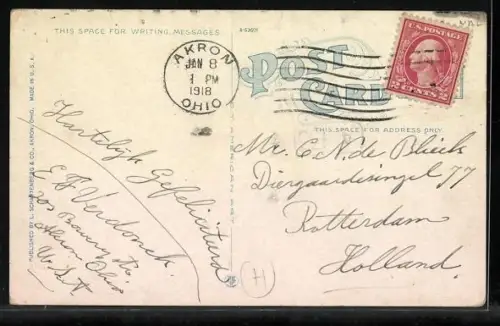 THIS SPACE FOR WRITING MESSAGES
POST CARD
THIS SPACE FOR ADDRESS ONLY
AKRON
JAN 8
1 PM
1918
OHIO
U.S. POSTAGE
2 CENTS 2
MADE IN U.S.A.
PUBLISHED BY & CO., AKRON, OHIO.
Hartelijk Gefeliciteerd
E J Verdonck.
Akron Ohio
U.S.A
Mr. C. N. de Blieck
Diergaardesingel 77
Rotterdam
Holland.
H